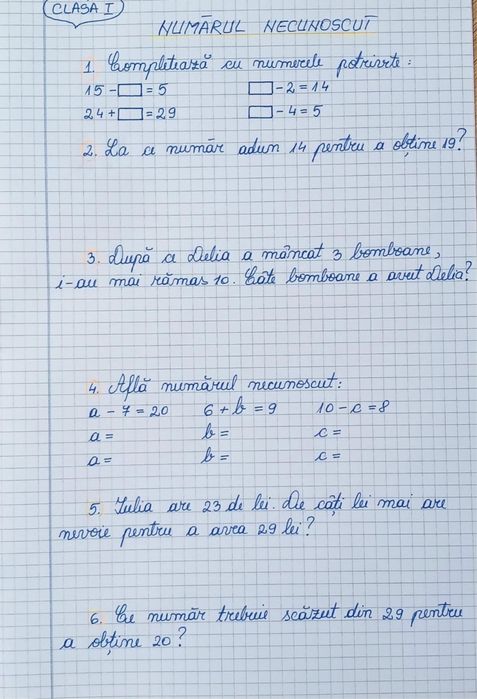 CLASA I
NUMĂRUL NECUNOSCUT
1. Completează cu numerele potrivite:
15 - □ = 5 □ - 2 = 14
24 + □ = 29 □ - 4 = 5
2. La ce număr adun 14 pentru a obține 19?
3. După ce Delia a mâncat 3 bomboane,
i-au mai rămas 10. Câte bomboane a avut Delia?
4. Află numărul necunoscut:
a - 7 = 20 6 + b = 9 10 - c = 8
a = b = c =
a = b = c =
5. Iulia are 23 de lei. De câți lei mai are
nevoie pentru a avea 29 lei?
6. Ce număr trebuie scăzut din 29 pentru
a obține 20?